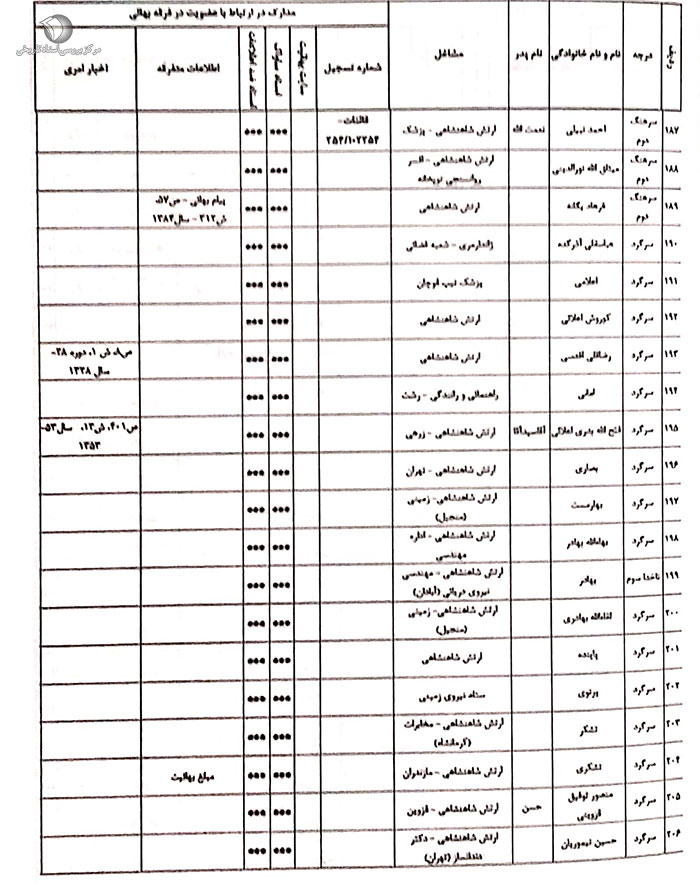 مرکز بررسی اسناد تاریخی
مدارک در ارتباط با عضویت در فرقه بهائی
ردیف درجه نام و نام خانوادگی نام پدر مشاغل شماره تسجیل سایت بهائیت اسناد ساواک اسناد ضد اطلاعات اطلاعات متفرقه اخبار امری
۱۸۷ سرهنگ دوم احمد نبیلی نعمت الله ارتش شاهنشاهی - پزشک قائنات- ۲۵۴/۱۰۲۲۵۴ *** ***
۱۸۸ سرهنگ دوم میثاق الله نورالدینی ارتش شاهنشاهی - افسر روانسنجی توپخانه *** ***
۱۸۹ سرهنگ دوم فرهاد یگانه ارتش شاهنشاهی *** *** پیام بهائی - ص۵۷، ش۳۱۲ - سال۱۳۸۴
۱۹۰ سرگرد عباسقلی آذرکده ژاندارمری - شعبه قضائی *** ***
۱۹۱ سرگرد اعلامی پزشک تیپ قوچان *** ***
۱۹۲ سرگرد کوروش اعلائی ارتش شاهنشاهی *** ***
۱۹۳ سرگرد رضاقلی اقدسی ارتش شاهنشاهی *** *** ص۸، ش ۱، دوره ۲۸- سال ۱۳۲۸
۱۹۴ سرگرد امانی راهنمائی و رانندگی - رشت *** ***
۱۹۵ سرگرد فتح الله بدری اعلائی آقاسیدآقا ارتش شاهنشاهی - زرهی *** *** ص۴۰۱، ش۱۳، سال۵۳- ۱۳۵۳
۱۹۶ سرگرد بصاری ارتش شاهنشاهی - تهران *** ***
۱۹۷ سرگرد بهارمست ارتش شاهنشاهی- زمینی (منجیل) *** ***
۱۹۸ سرگرد بهاءالله بهادر ارتش شاهنشاهی - اداره مهندسی *** ***
۱۹۹ ناخدا سوم بهادر ارتش شاهنشاهی - مهندسی نیروی دریائی (آبادان) *** ***
۲۰۰ سرگرد لقاءالله بهادری ارتش شاهنشاهی- زمینی (منجیل) *** ***
۲۰۱ سرگرد پاینده ارتش شاهنشاهی *** ***
۲۰۲ سرگرد پرتوی ستاد نیروی زمینی *** ***
۲۰۳ سرگرد تشکر ارتش شاهنشاهی - مخابرات (کرمانشاه) *** ***
۲۰۴ سرگرد تشکری ارتش شاهنشاهی - مازندران *** *** مبلغ بهائیت
۲۰۵ سرگرد منصور توفیق قزوینی حسن ارتش شاهنشاهی - قزوین *** ***
۲۰۶ سرگرد حسین تیموریان ارتش شاهنشاهی - دکتر دندانساز (تهران) *** ***